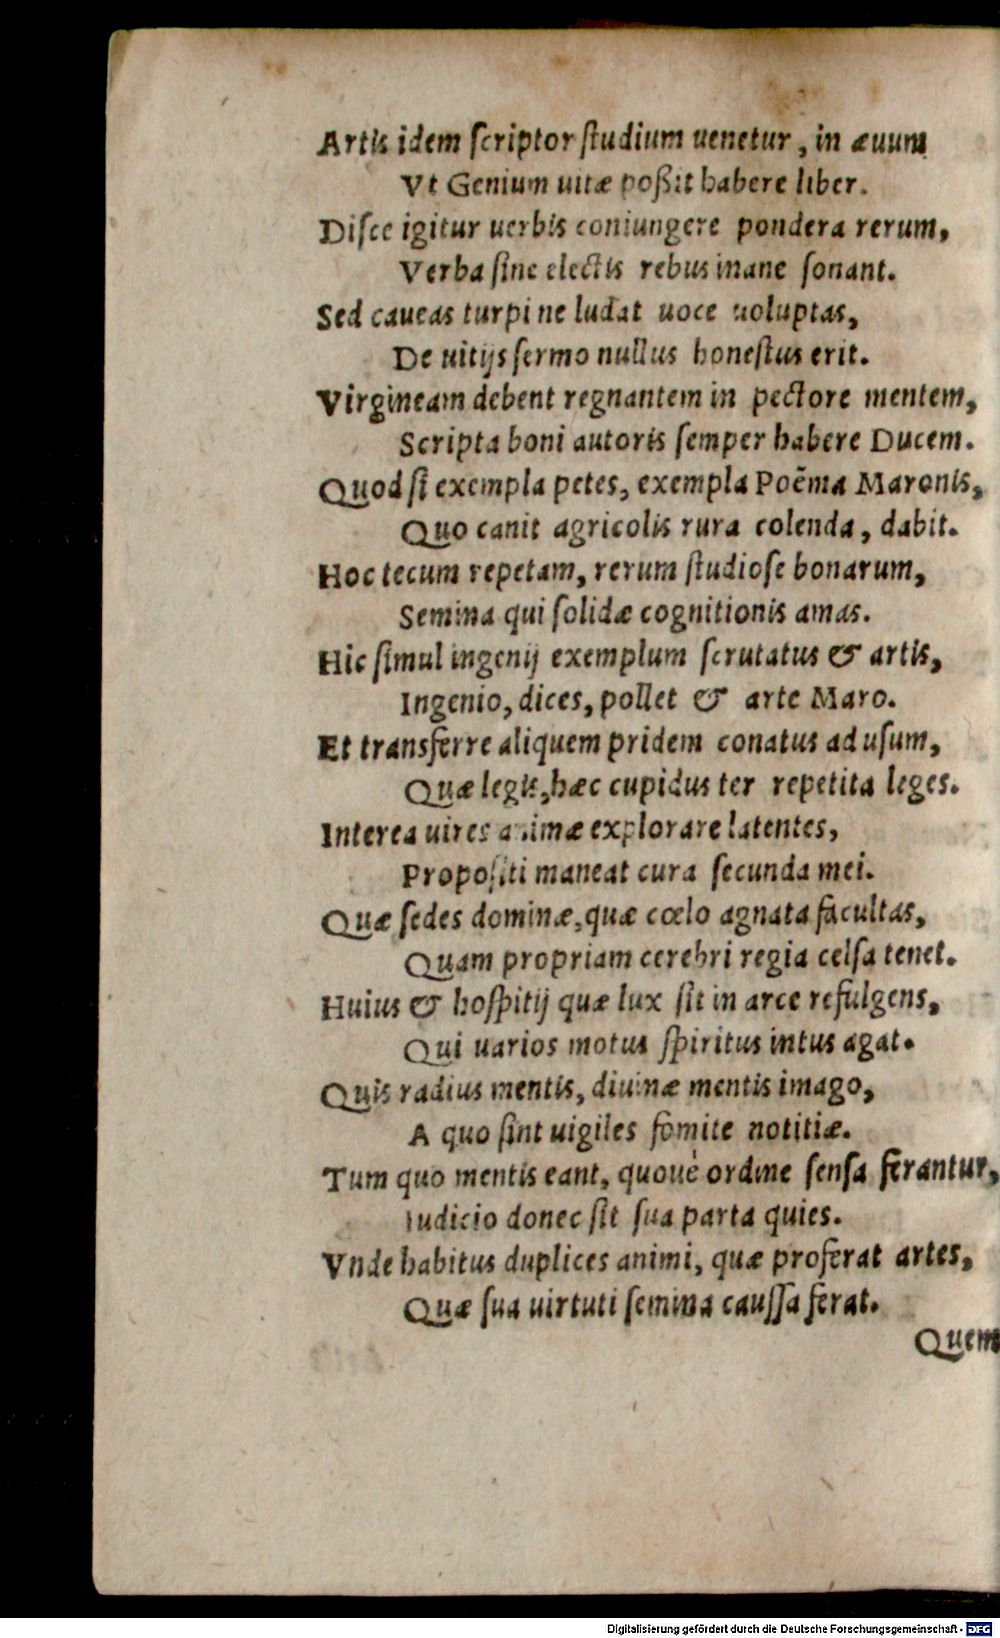 Artis idem scriptor studium uenetur, in æuum
Vt Genium uitæ poßit habere liber.
Disce igitur uerbis coniungere pondera rerum,
Verba sine electis rebus inane sonant.
Sed caueas turpi ne ludat uoce uoluptas,
De uitijs sermo nullus honestus erit.
Virgineam debent regnantem in pectore mentem,
Scripta boni autoris semper habere Ducem.
Quod si exempla petes, exempla Poëma Maronis,
Quo canit agricolis rura colenda, dabit.
Hoc tecum repetam, rerum studiose bonarum,
Semina qui solidæ cognitionis amas.
Hic simul ingenij exemplum scrutatus & artis,
Ingenio, dices, pollet & arte Maro.
Et transferre aliquem pridem conatus ad usum,
Quæ legis, hæc cupidus ter repetita leges.
Interea uires animæ explorare latentes,
Propositi maneat cura secunda mei.
Quæ sedes dominæ, quæ cœlo agnata facultas,
Quam propriam cerebri regia celsa tenet.
Huius & hospitij quæ lux sit in arce refulgens,
Qui uarios motus spiritus intus agat.
Quis radius mentis, diuinæ mentis imago,
A quo sint uigiles fomite notitiæ.
Tum quo mentis eant, quoue̓ ordine sensa ferantur,
Iudicio donec sit sua parta quies.
Vnde habitus duplices animi, quæ proferat artes,
Quæ sua uirtuti semina caussa ferat.
Quem
Digitalisierung gefördert durch die Deutsche Forschungsgemeinschaft - DFG